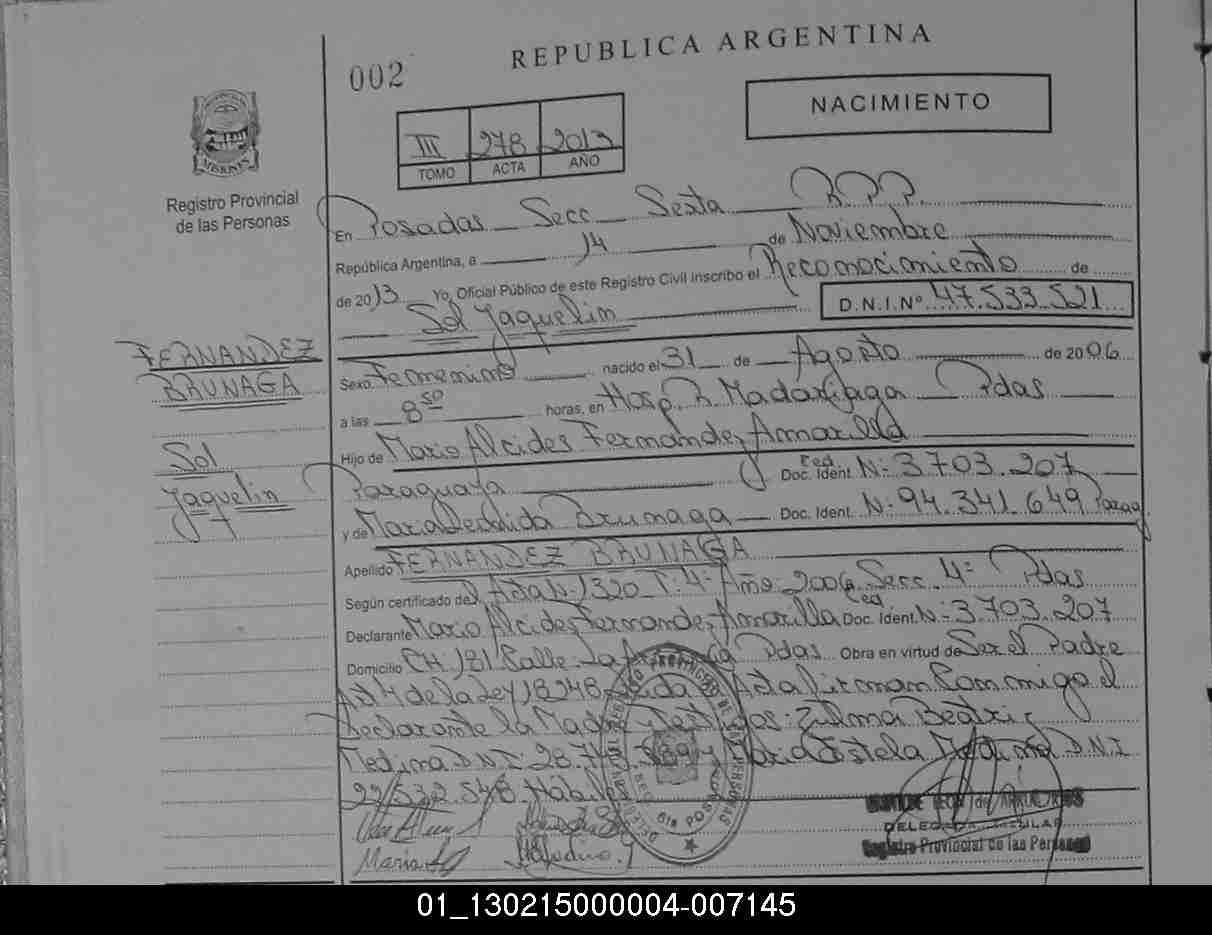 002
REPUBLICA ARGENTINA
NACIMIENTO
III 278 2013
TOMO ACTA AÑO
MISIONES
Registro Provincial
de las Personas
En Posadas Secc Sexta R.P.P.
República Argentina, a 14 de Noviembre
de 2013 Yo, Oficial Público de este Registro Civil inscribo el Reconocimiento de
Sol Jaquelin D.N.I.Nº 47.533.521
FERNANDEZ
BRUNAGA
Sol
Jaquelin
Sexo Femenino nacido el 31 de Agosto de 2006
a las 8 50 horas, en Hosp. R. Madariaga Pdas
Hijo de Mario Alcides Fernandez Amarilla
Paraguaya Ced. Doc. Ident. N: 3703.207
y de Brunaga Doc. Ident. N: 94.341.649 Parag
Apellido FERNANDEZ BRUNAGA
Según certificado de Acta N: 1320 T: 4º Año: 2006 Secc. 4º Pdas
Declarante Mario Alcides Fernandez Amarilla Ced Doc. Ident. N: 3.703.207
Domicilio CH 181 Calle Pdas Obra en virtud de Ser el Padre
Art 4 de la Ley 18248 Acta firman conmigo el
Declarante la Madre y Testigos: Zulma Beatriz
Medina D.N.I: 28.7 y Maria Estela Medina D.N.I
22.532.548 Hábiles
DELEGADA TITULAR
Registro Provincial de las Personas
01_130215000004-007145